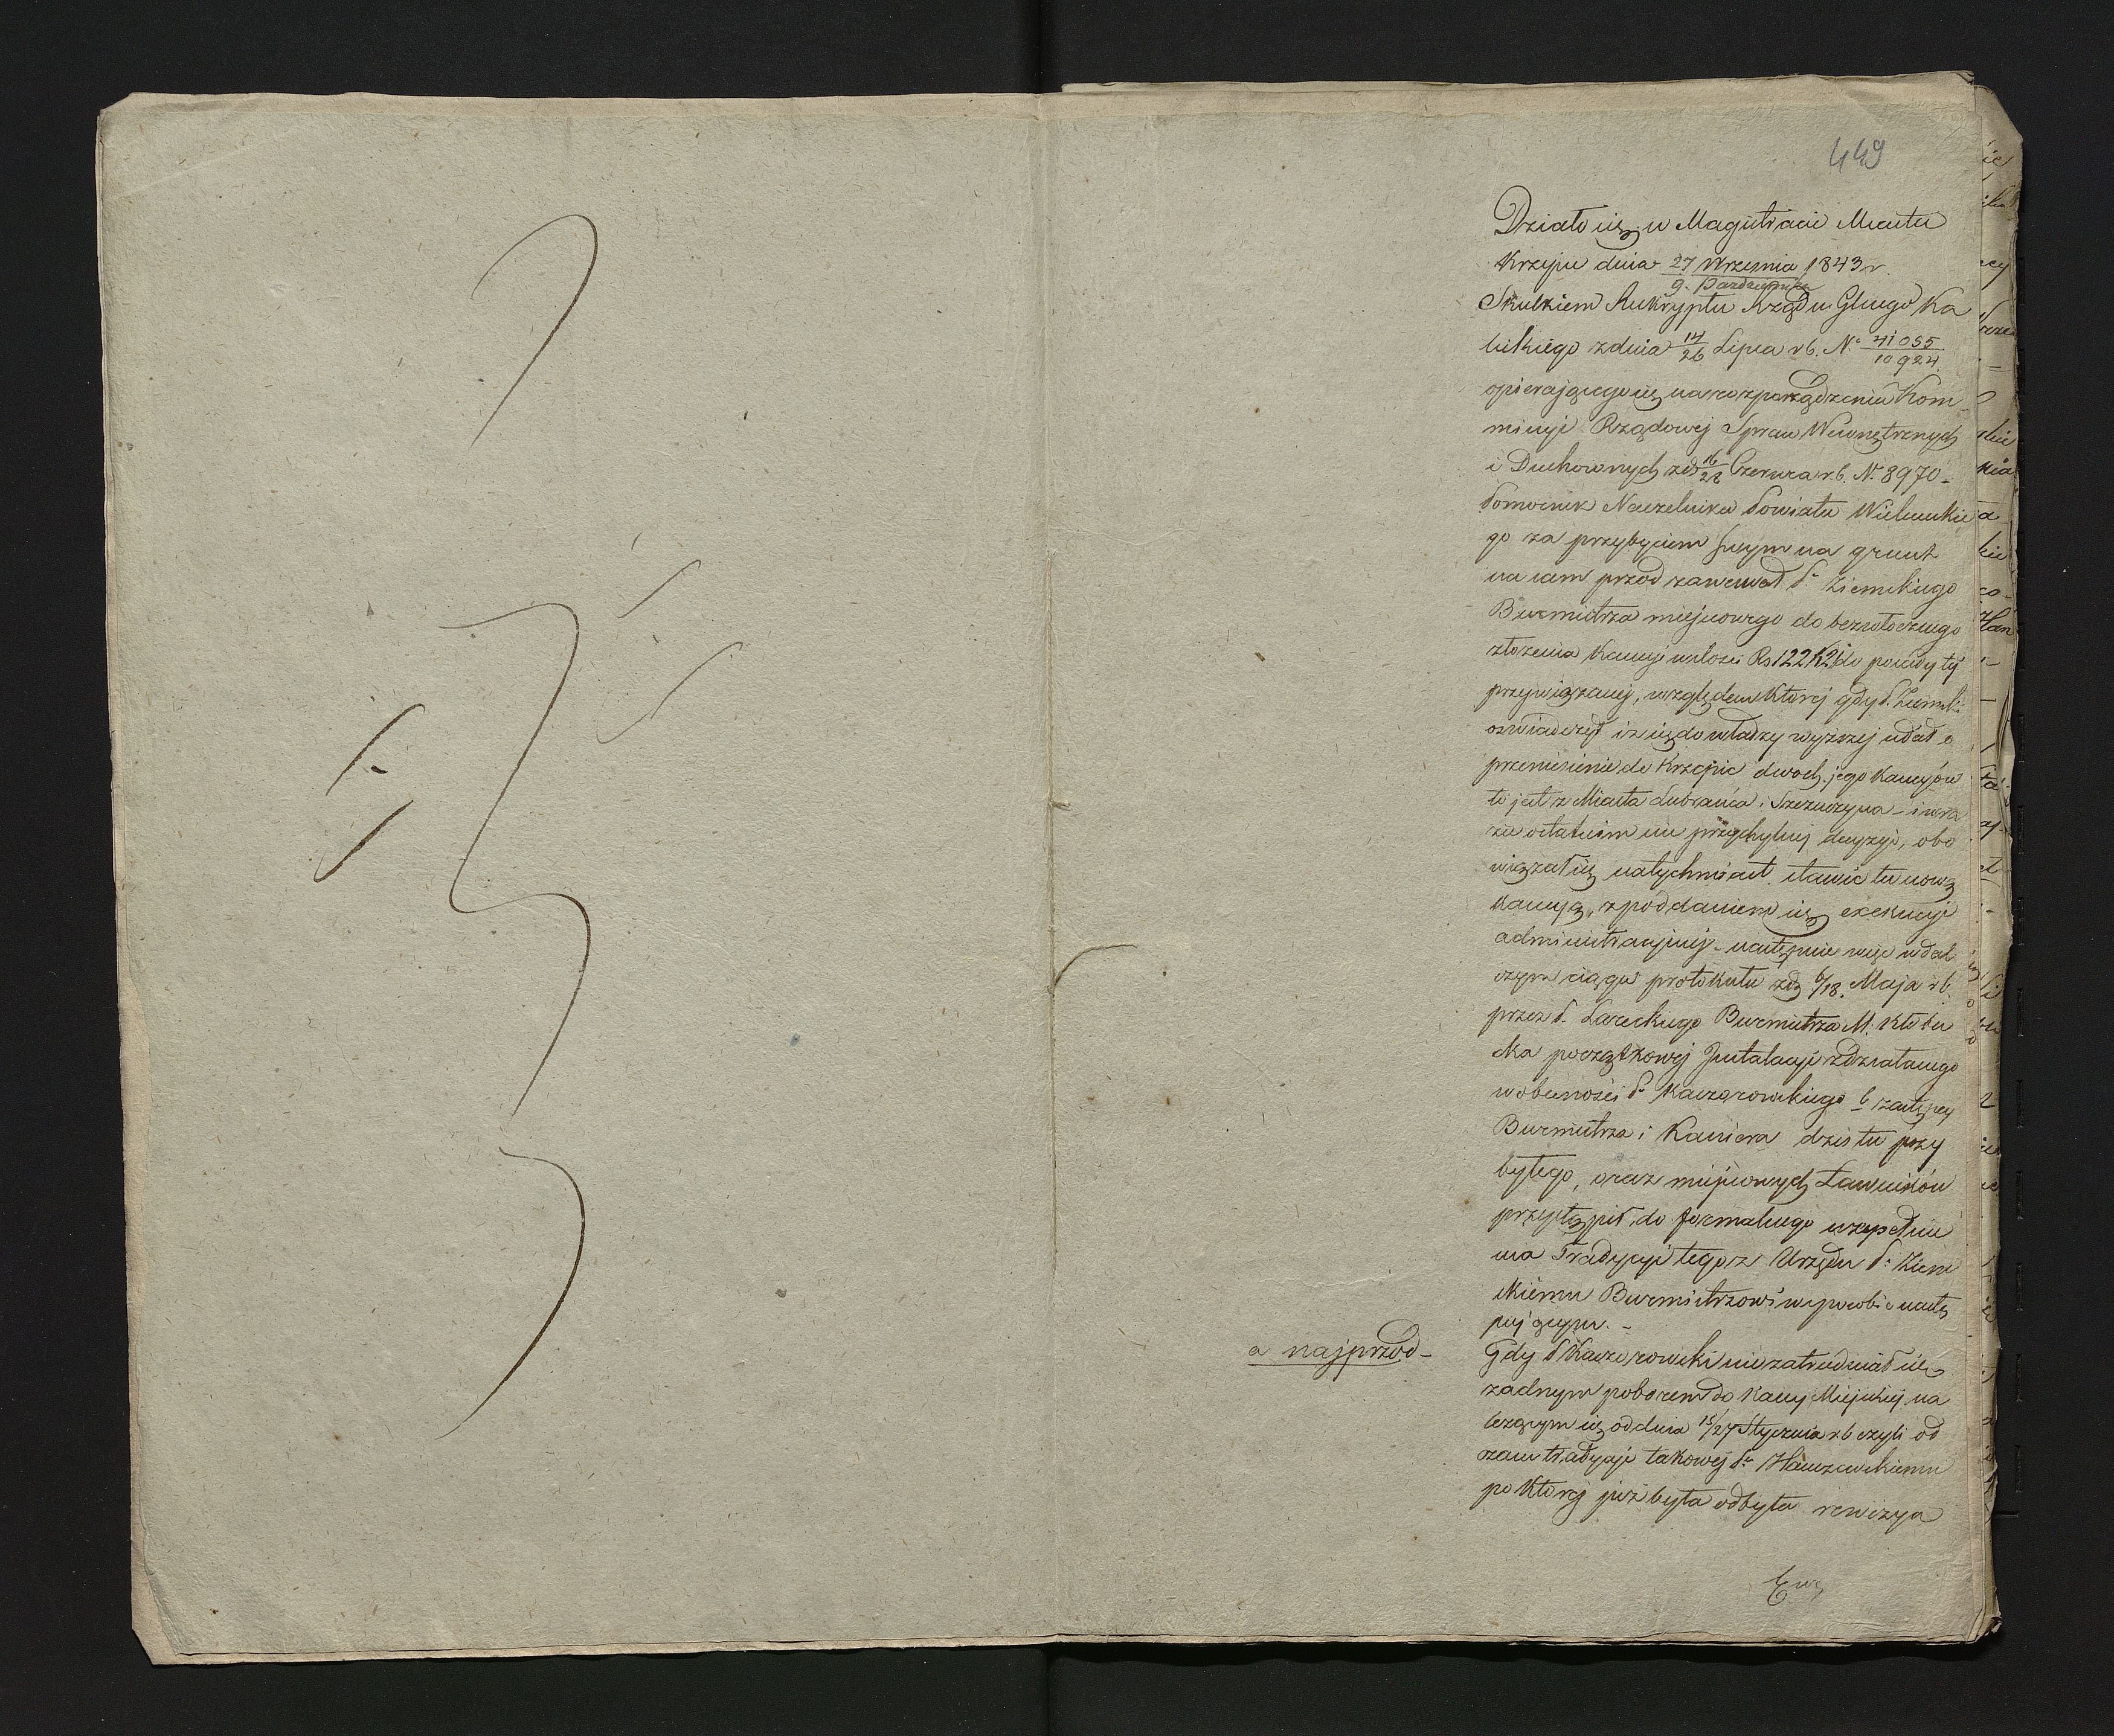 449
Działo się w Magistracie Miasta
Krzepic dnia 27 Września 1843 r.
9. Października
Skutkiem Reskryptu Rządu Glnego Ka
liskiego z dnia 14/26 Lipca r b. N° 41055/10924
opierającego się na rozporządzeniu Kom
missyi Rządowej Spraw Wewnętrznych
i Duchownych z d 16/28 Czerwca r. b. N. 8970 -
Pomocnik Naczelnika Powiatu Wieluńskie
go za przybyciem swym na grunt
na sam przod zawezwał P. Ziemskiego
Burmistrza miejscowego do bezwłocznego
złożenia Kaucyi w ilości Rs 122 K 2 do posady tej
przywiązanej, względem Ktorej gdy P. Ziemski
oświadczył iż się do władzy wyższej udał o
przeniesienie do Krzepic dwoch jego Kaucyów
to jest z Miasta Lubrańca i Szczuczyna - i w ra
zie ostatnim nie przychylnej decyzyi, obo
wiązał się natychmiast stawić tu nową
Kaucyą, z poddaniem się exekucyi
administracyjnej - następnie więc w dal
szym ciągu protokułu z d 6/18. Maja r b.
przez P. Lareckiego Burmistrza M. Kłobu
cka początkowej Instalacyi zdziałanego
w obecności P. Kaczorowskiego b zastępcy
Burmistrza i Kassiera dziś tu przy
byłego, oraz miejscowych Ławników
przystąpił do formalnego uzupełnie
nia Tradycyi tegoż Urzędu P. Ziem
skiemu Burmistrzowi w sposobie nastę
pującym. -
a najprzod -
Gdy P Kaczorowski nie zatrudniał się
żadnym poborem do Kassy Miejskiej na
leżącym się od dnia 15/27 Stycznia r b czyli od
czasu tradycyi takowej P.
po Ktorej już była odbyta rewizya